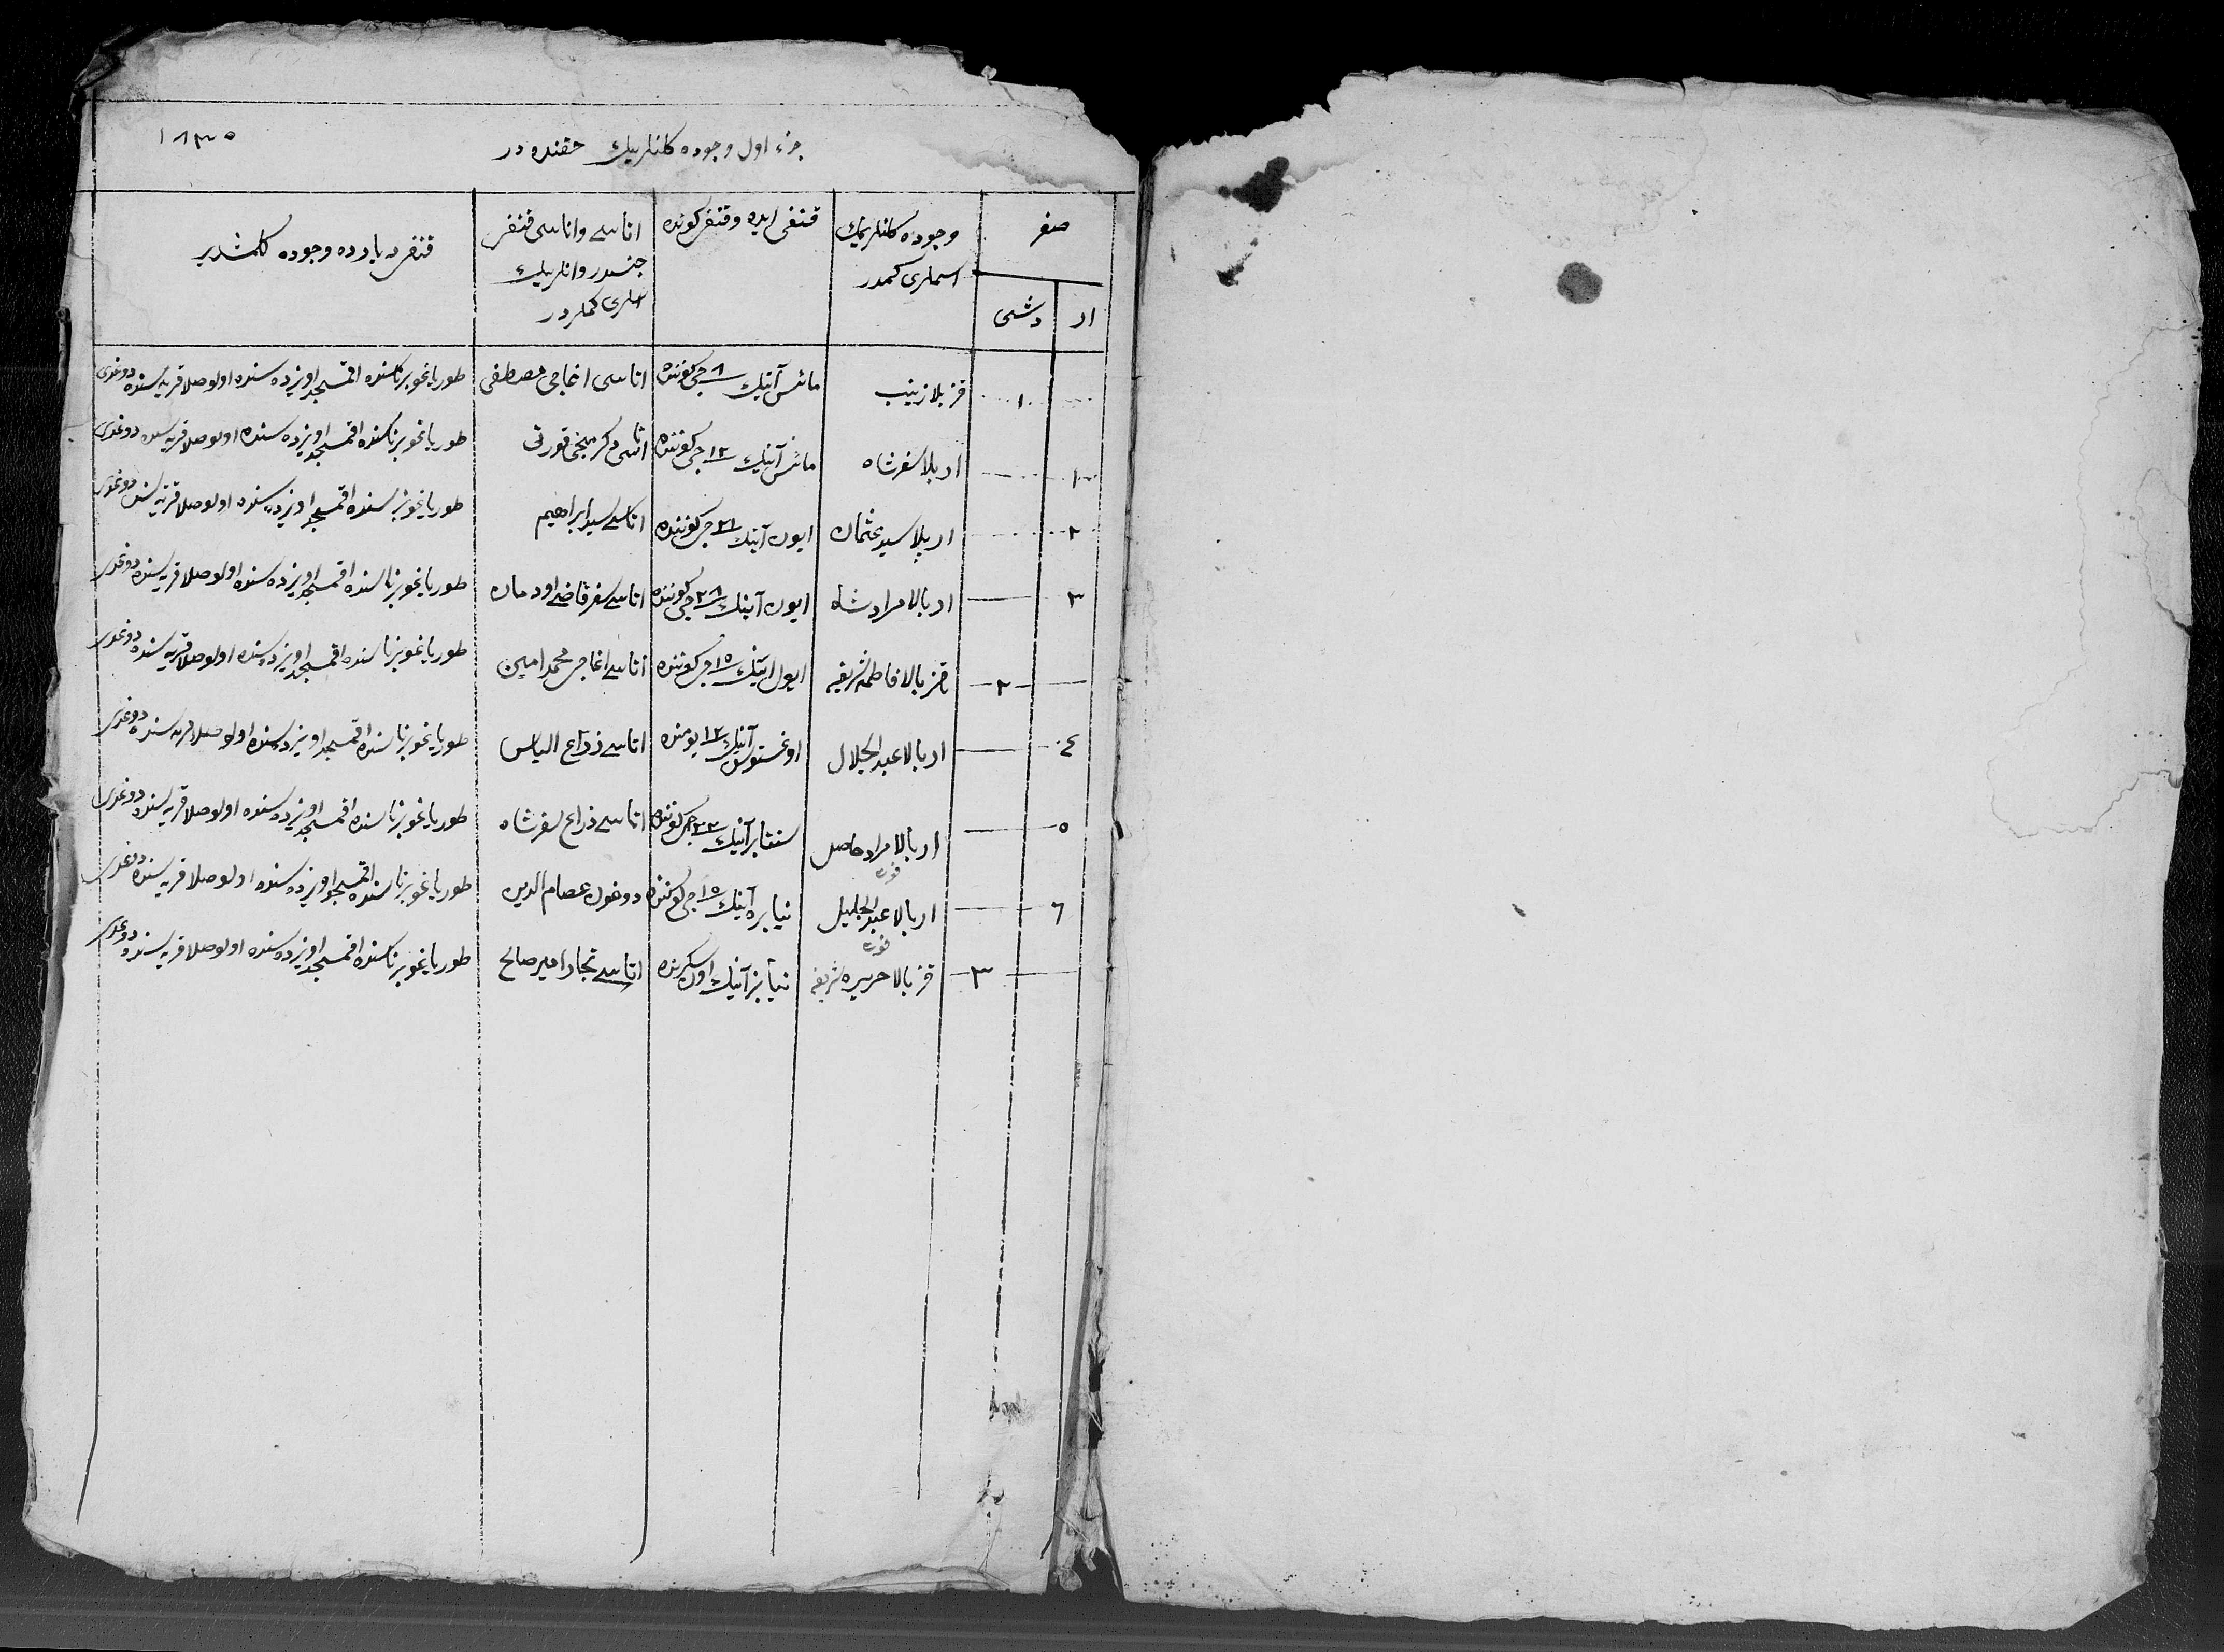 جزء اول وجوده کلنلرینك حقنده در
١٨٣٠
صفر
ار
دشی
وجوده کلنلرینك
اسملری کمدر
قنغی ایده وقنغی کونده
اتاسی واناسی قنغی
جنسدر وانلرینك
اسملری کملردر
قنغی یارده وجوده کلمشدیر
١
قز بلا زینب
مائس آینك ٨ جی کوننده
اتاسی اغاجی مصطفی
طوریا غوبرناسنده اقمسجد اویزده سنده اولوصلا قریه سنده دوغدی
١
ار بلا سفرشاه
مائس آینك ١٢ جی کوننده
اتاسی
طوریا غوبرناسنده اقمسجد اویزده سنده اولوصلا قریه سنده دوغدی
٢
ار بلا سید عثمان
ایون آینك ٢١ جی کوننده
اتاسی سید ابراهیم
طوریا غوبرناسنده اقمسجد اویزده سنده اولوصلا قریه سنده دوغدی
٣
ار بالا مراد شاه
ایون آینك ٢٨ جی کوننده
اتاسی سفر قاضی اودمان
طوریا غوبرناسنده اقمسجد اویزده سنده اولوصلا قریه سنده دوغدی
٢
قز بالا فاطمه شریفه
ایول آینك ١٥ جی کوننده
اتاسی اغاجی محمد امین
طوریا غوبرناسنده اقمسجد اویزده سنده اولوصلا قریه سنده دوغدی
٤
ار بالا عبد الجلال
اوغستوس آینك ١٢ یومنده
اتاسی ذراع الیاس
طوریا غوبرناسنده اقمسجد اویزده سنده اولوصلا قریه سنده دوغدی
٥
ار بالا مراد حاصل
سنتابر آینك ٢٣ جی کوننده
اتاسی ذراع سفرشاه
طوریا غوبرناسنده اقمسجد اویزده سنده اولوصلا قریه سنده دوغدی
فوت
٦
ار بالا عبد الجلیل
نیابره آینك ١٥ جی کوننده
دوغون عصام الدین
طوریا غوبرناسنده اقمسجد اویزده سنده اولوصلا قریه سنده دوغدی
فوت
٣
قز بالا حریره شریفه
نیابر آینك اون سکزنده
اتاسی تجار امیر صالح
طوریا غوبرناسنده اقمسجد اویزده سنده اولوصلا قریه سنده دوغدی